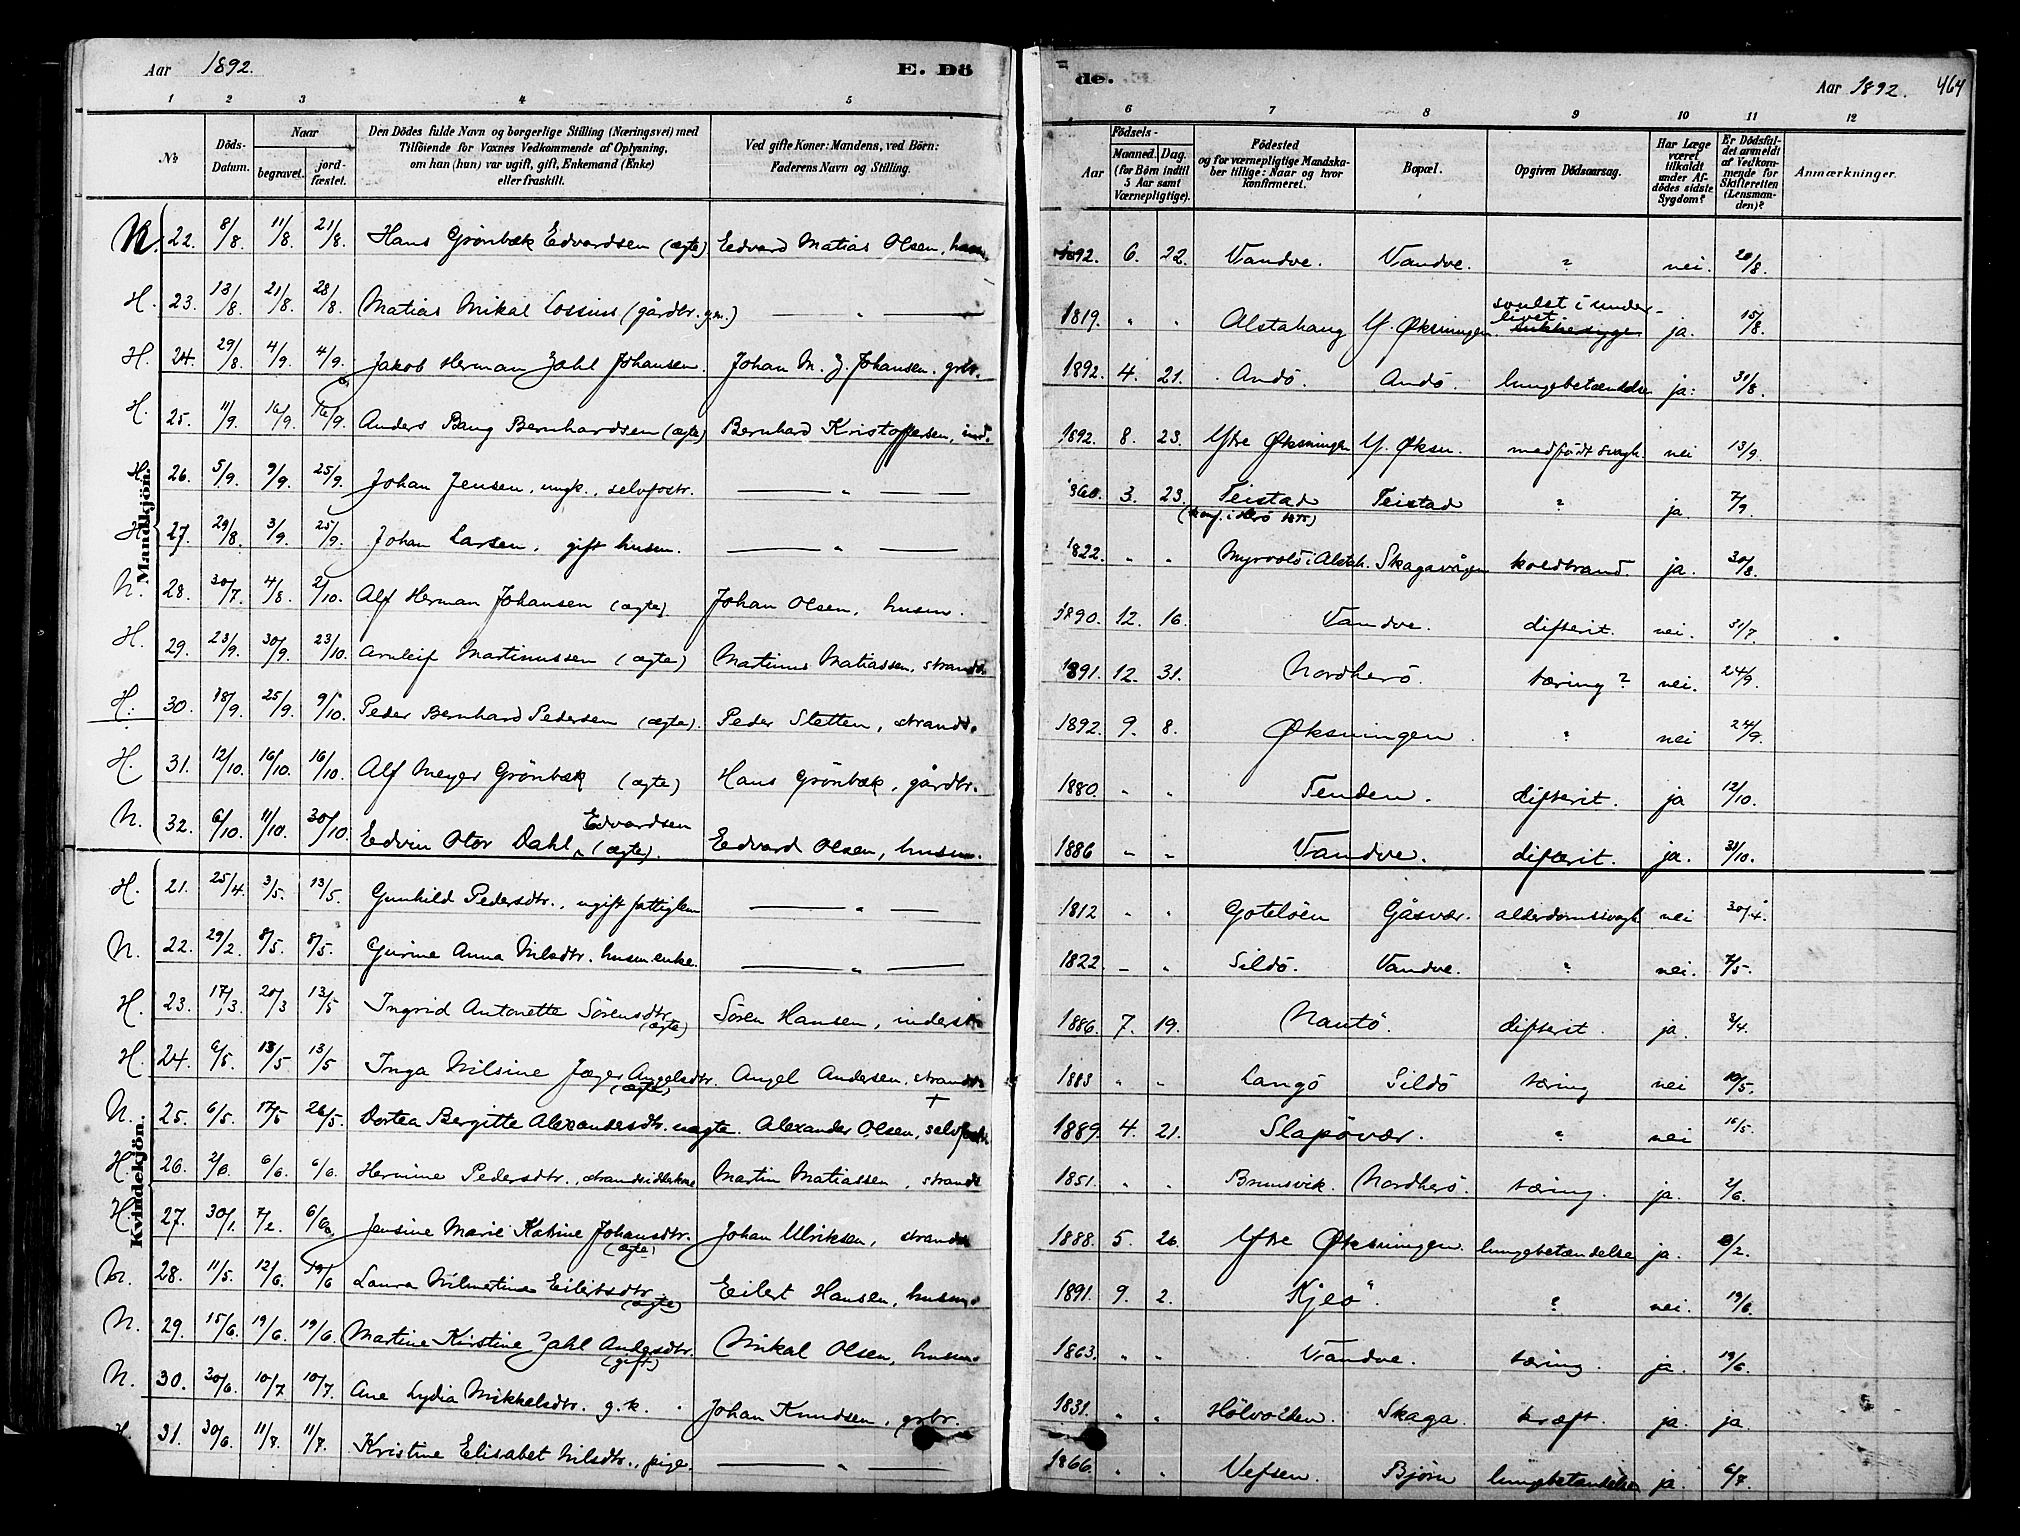 Aar 1892. E. Dö de. Aar 1892. 464
1 2 3 4 5 6 7 8 9 10 11 12
No Döds-Datum. Naar begravet. jord-fæstet. Den Dödes fulde Navn og borgerlige Stilling (Næringsvei) med Tilföiende for Voxnes Vedkommende af Oplysning, om han (hun) var ugift, gift, Enkemand (Enke) eller fraskilt. Ved gifte Koner: Mandens, ved Börn: Faderens Navn og Stilling. Födsels- Aar Maaned. Dag. (for Börn indtil 5 Aar samt Værnepligtige). Födested og for værnepligtige Mandskaber tillige: Naar og hvor konfirmeret. Bopæl. Opgiven Dödsaarsag. Har Læge været tilkaldt under Afdödes sidste Sygdom? Er Dödsfaldet anmeldt af Vedkommende for Skifteretten (Lensmanden)? Anmærkninger.
Mandkjön.
N. 22. 8/8 11/8. 21/8. Hans Grönbæk Edvardsen (ægte) Edvard Matias Olsen, husm. 1892. 6. 22. Vandve. Vandve. ? nei. 20/8.
H. 23. 13/8 21/8. 28/8. Matias Mikal Lossius (gårdbr. gm.) — " — 1819. " " Alstahaug Y. Øksningen svulst i underlivet ja. 15/8.
H. 24. 29/8 4/9. 4/9. Jakob Herman Zahl Johansen. Johan M. Z. Johansen. grbr. 1892. 4. 21. Andö. Andö. lungebetændelse ja. 31/8.
H. 25. 11/9. 16/9. 16/9. Anders Bang Bernhardsen (ægte) Bernhard Kristoffersen, ind. 1892. 8. 23. Ytre Øksningen Y. Øksn. medfödt svagh. nei 13/9.
H. 26. 5/9. 9/9. 25/9. Johan Jensen, ungk., selvfostr. — " — 1860. 3. 23. Teistad (konf. i Herö 1875) Teistad ? ja. 7/9.
H. 27. 29/8 3/9. 25/9. Johan Larsen, gift husm. — " — 1822. " " Myrvold i Alstah. Skagavågen koldbrand. ja. 30/8.
N. 28. 30/7 4/8. 2/10. Alf Herman Johansen (ægte) Johan Olsen, husm. 1890. 12. 16. Vandve. difterit. nei. 31/7.
H. 29. 23/9. 30/9. 23/10. Arnleif Martinussen (ægte) Martinus Matiassen, strands. 1891. 12. 31. Nordherö. tæring? nei. 24/9.
H. 30. 18/9. 25/9. 9/10. Peder Bernhard Pedersen (ægte). Peder Stetten, strands. 1892. 9. 8. Øksningen. ? nei 24/9.
H. 31. 12/10. 16/10. 16/10. Alf Meyer Grönbæk (ægte) Hans Grönbæk, gårdbr. 1880. " " Tenden. difterit. ja 12/10.
N. 32. 6/10. 11/10. 30/10. Edvin Otor Dahl Edvardsen (ægte). Edvard Olsen, husm. 1886 " " Vandve. difterit. ja. 31/10.
Kvindekjön.
H. 21. 25/4. 3/5. 13/5. Gunhild Pedersdtr., ugift fattiglem — " — 1812 " " Goteløen Gåsvær. alderdomssvagh. nei 30/4.
N. 22. 29/2. 8/5. 8/5. Gurine Anna Nilsdtr. husm.enke. — " — 1822. " " Sildö. Vandve. ? nei. 7/5.
H. 23. 17/3 20/3 13/5 Ingrid Antonette Sörensdtr. (ægte) Sören Hansen, inderst 1886. 7. 19. Nautö. difterit. ja. 3/4.
H. 24. 6/5. 13/5 13/5 Inga Nilsine Jæger Angelsdtr. (ægte) Angel Andersen, strands. 1883 " " Langö Sildö tæring nei 10/5.
N. 25. 6/5. 17/5 26/5. Dortea Bergitte Alexandersdtr. uægte. Alexander Olsen, selvfostr. 1889. 4. 21. Slapövær. ? nei 16/5.
H. 26. 2/6. 6/6. 6/6. Hermine Pedersdtr., strandsidderkone Martin Matiassen, strands 1851. " " Brunsvik. Nordherö. tæring. ja. 2/6.
H. 27. 30/1. 7/2. 6/6. Jensine Marie Katrine Johansdtr. (ægte) Johan Ulriksen, strands 1888. 5. 26. Ytre Øksningen. lungebetændelse ja. 8/2.
N. 28. 11/5. 12/6. 19/6 Laura Vilmertine Eilertsdtr. (ægte) Eilert Hansen, husm. 1891. 9. 2. Kjeö. ? nei. 19/6.
N. 29. 15/6. 19/6. 19/6. Martine Kirstine Zahl Andersdtr. (gift) Mikal Olsen, husm. 1863. " " Vandve. tæring. ja. 19/6.
N. 30. 30/6. 10/7 10/7. Ane Lydia Mikkelsdtr. g.k. Johan Knudsen, grbr. 1831. " " Hölvolden. Skaga. kræft. ja. ja.
H. 31. 30/6. 11/7. 11/7. Kristine Elisabet Nilsdtr., pige. — " — 1866. " " Vefsen. Bjørn lungebetændelse ja. 6/7.